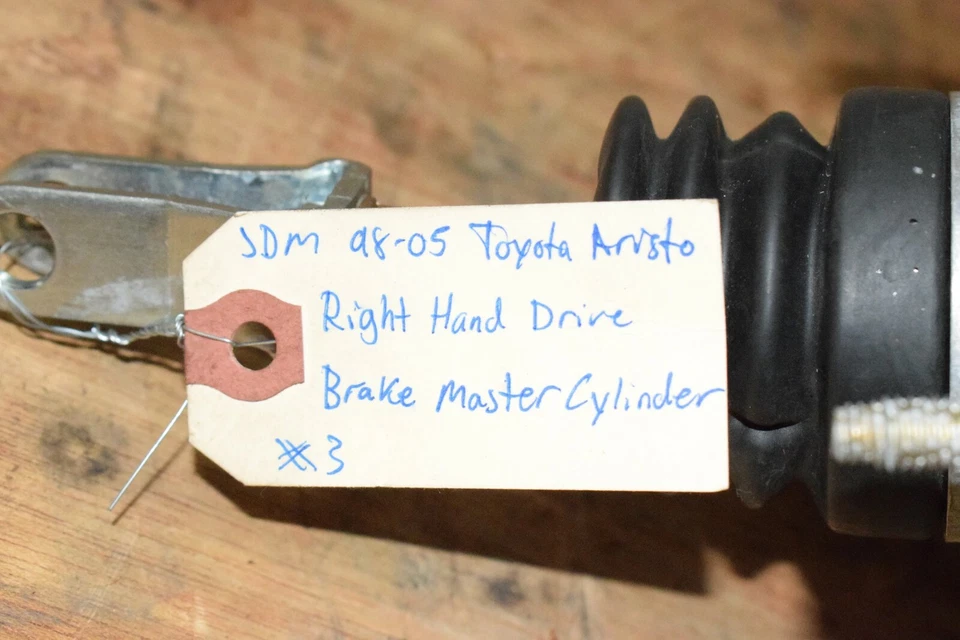 JDM 98-05 Toyota Aristo
Right Hand Drive
Brake Master Cylinder
#3